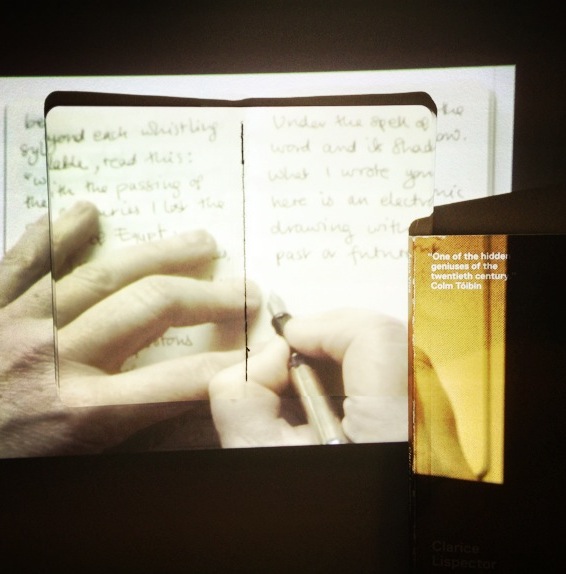 beyond each whistling
syllable, read this:
"with the passing of
the centuries I lost the
of Egypt
Under the spell of the
word and its shadow.
What I wrote you
here is an electronic
drawing with
past or future
"One of the hidden
geniuses of the
twentieth century
Colm Tóibín
Clarice
Lispector